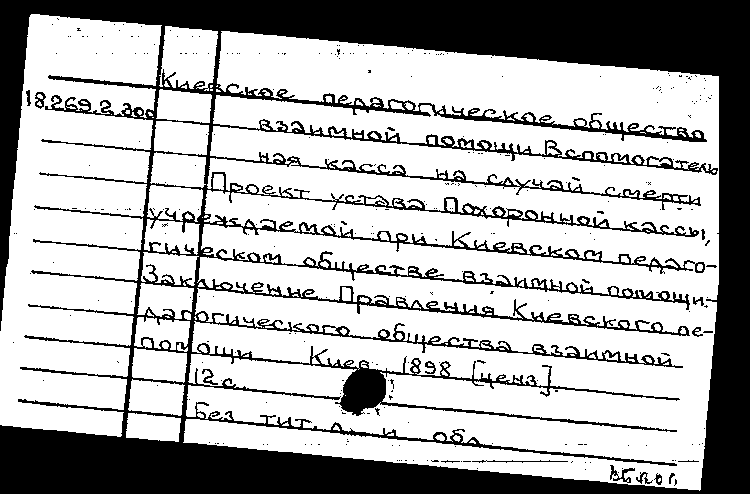 Киевское педагогическое общество
18.269.2.200
взаимной помощи Вспомогатель
ная касса на случай смерти
Проект устава Похоронной кассы,
учреждаемой при Киевском педаго-
гическом обществе взаимной помощи.-
Заключение Правления Киевского пе-
дагогического общества взаимной
помощи Киев 1898 [ценз].
12 с.
Без тит. л. и обл